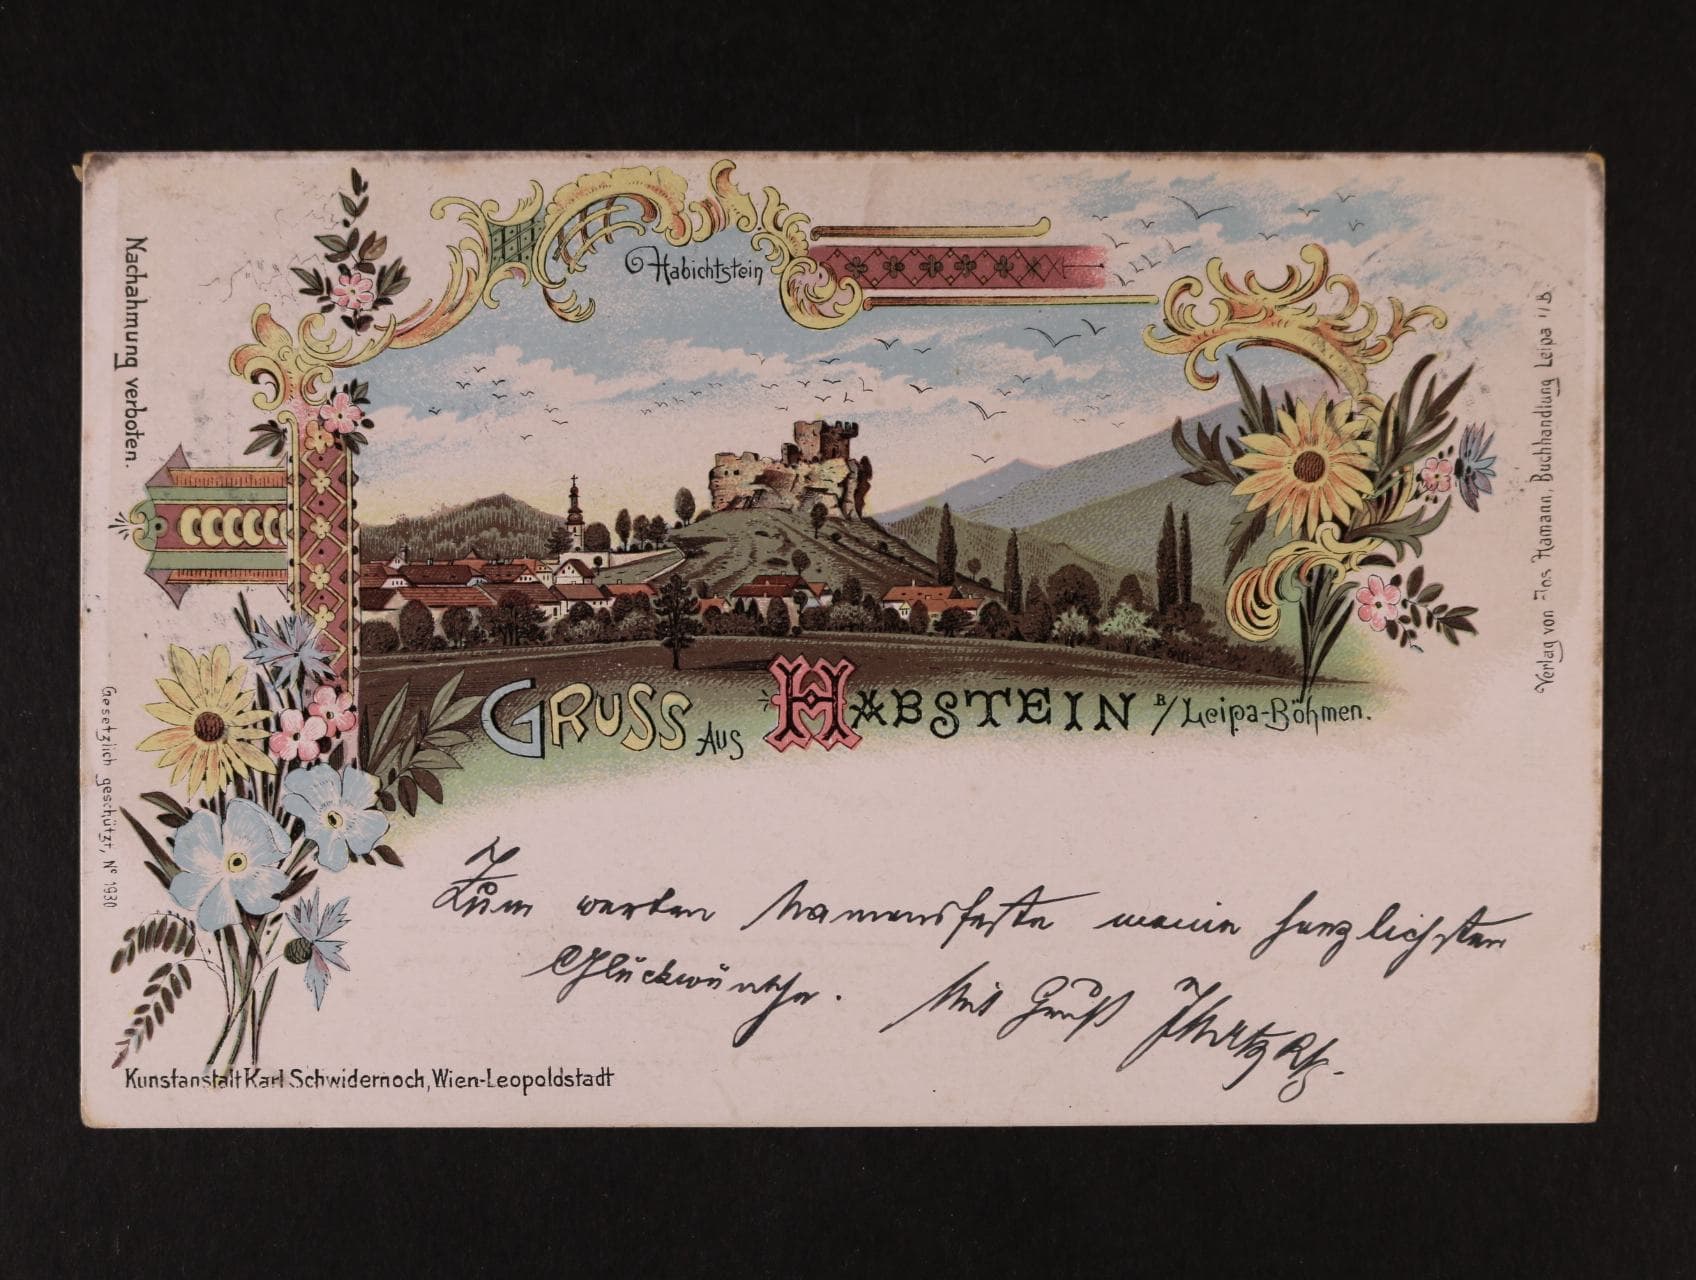 Nachahmung verboten.
Habichtstein
Verlag von Jos Hamann, Buchhandlung Leipa i/B.
GRUSS AUS HABSTEIN B/Leipa-Böhmen.
Gesetzlich geschützt, No 1930
Zum werten Namensfeste meine herzlichsten
Glückwünsche. Mit Gruß
Kunstanstalt Karl Schwidernoch, Wien-Leopoldstadt